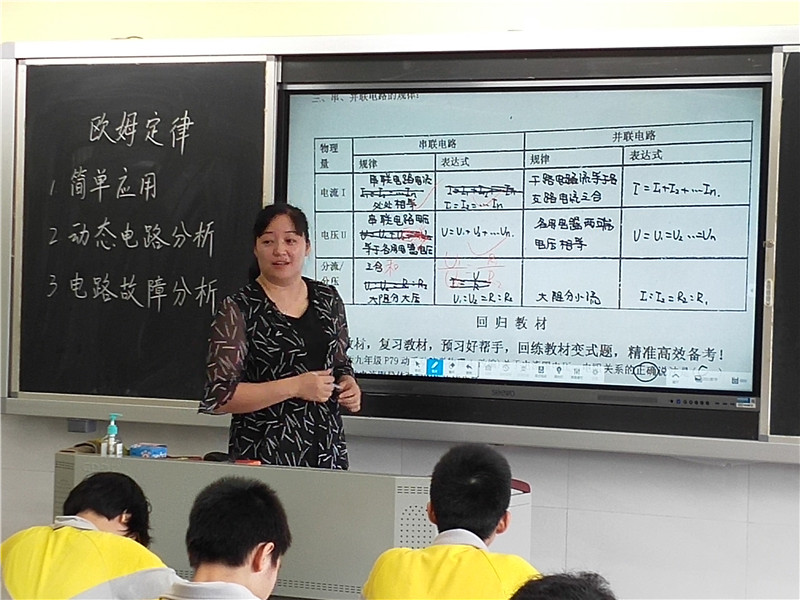 欧姆定律
1 简单应用
2 动态电路分析
3 电路故障分析
三、串、并联电路的规律:
物理量 串联电路 并联电路
规律 表达式 规律 表达式
电流 I
串联电路电流
处处相等
I=I₁=I₂=…In
干路电流等于各
支路电流之和
I=I₁+I₂+…In
电压 U
串联电路电压
等于各用电器电压
之和
U=U₁+U₂+…Un
各用电器两端
电压相等
U=U₁=U₂…=Un
分流/
分压
大阻分大压
U₁:U₂=R₁:R₂
大阻分小流
I₁:I₂=R₂:R₁
回 归 教 材
教材，复习教材，预习好帮手，回练教材变式题，精准高效备考！
九年级 P79 动
关系的正确